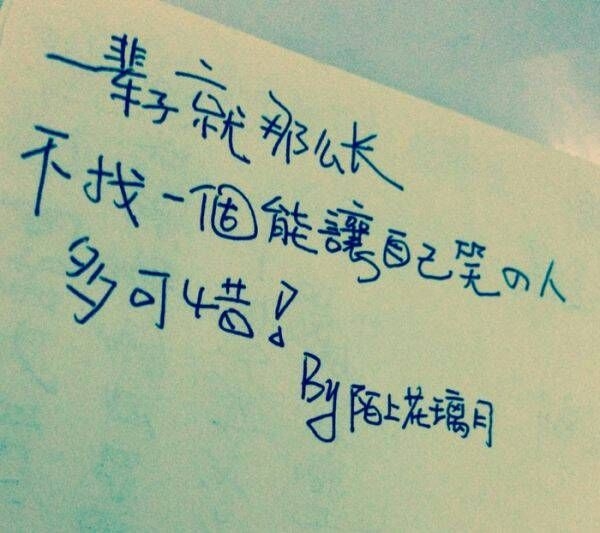 一辈子就那么长
不找一個能讓自己笑の人
多可惜!
By陌上花璃月